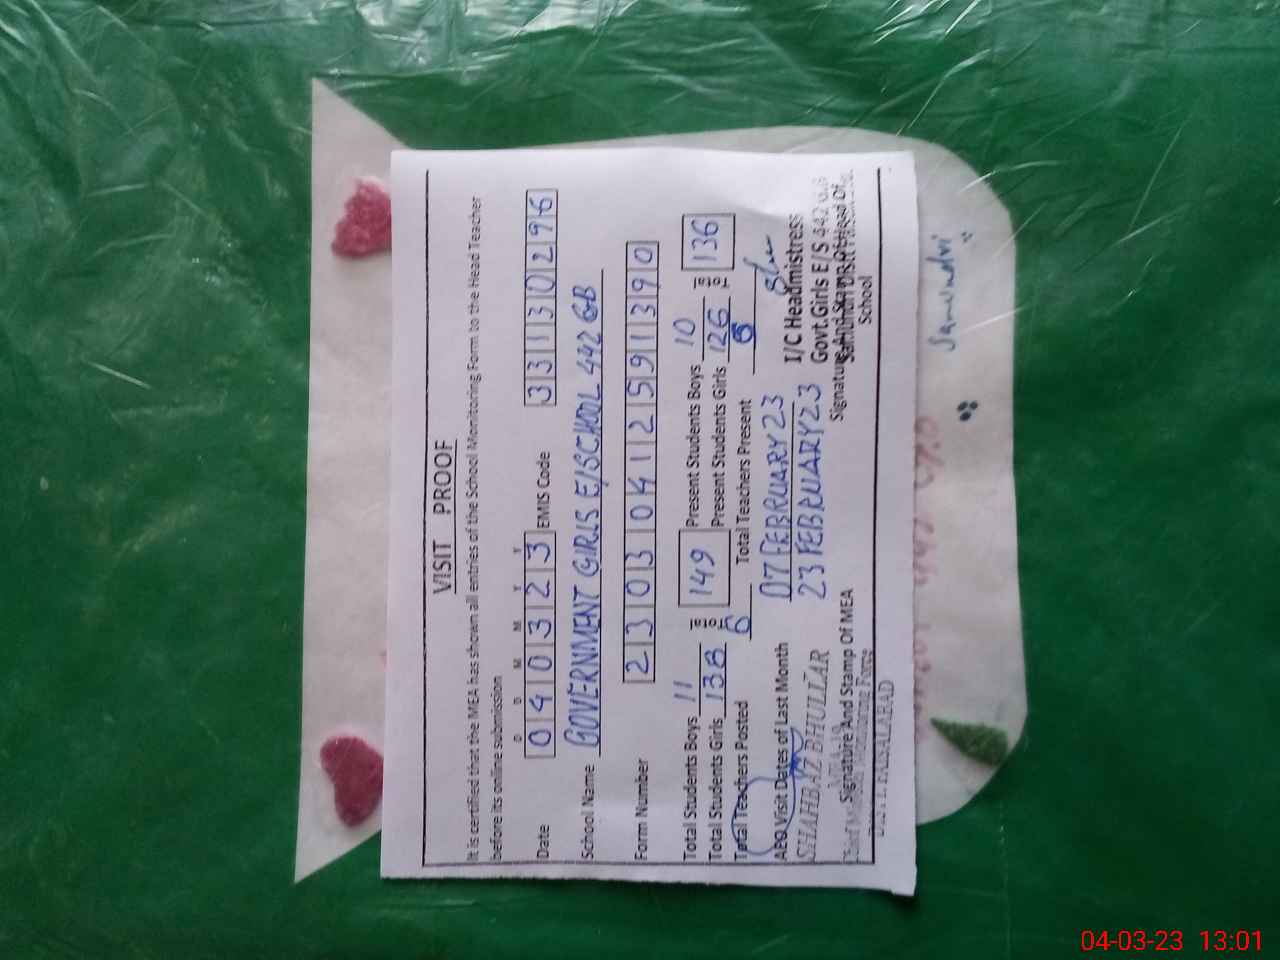 VISIT PROOF
It is certified that the MEA has shown all entries of the School Monitoring Form to the Head Teacher
before its online submission
D D M M Y Y
Date 040323 EMIS Code 33130296
School Name GOVERNMENT GIRLS E/SCHOOL 442 GB
Form Number 23030412591390
Total Students Boys 11 Total 149 Present Students Boys 10 Total 136
Total Students Girls 138 Present Students Girls 126
Total Teachers Posted 6 Total Teachers Present 6
AEO Visit Dates of Last Month 07 FEBRUARY 23
23 FEBRUARY 23
SHAHBAZ BHULLAR
Signature And Stamp Of MEA
Chief Minister Monitoring Force
DISTT. FAISALABAD
I/C Headmistress
Govt. Girls E/S 442 G.B
Signature And Stamp Of Head Of
School
Samundri
04-03-23 13:01